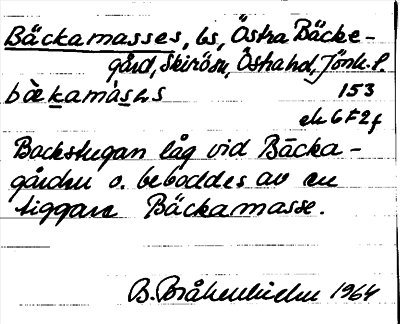 Bäckamasses, bs, Östra Bäcke-
gård, Skirösn, Östrahd, Jönk. l.
bæ̀kamàsəs 153
ek 6F2f
Backstugan låg vid Bäcka-
gården o. beboddes av en
tiggare Bäckamasse.
B. Bråkenhielm 1964